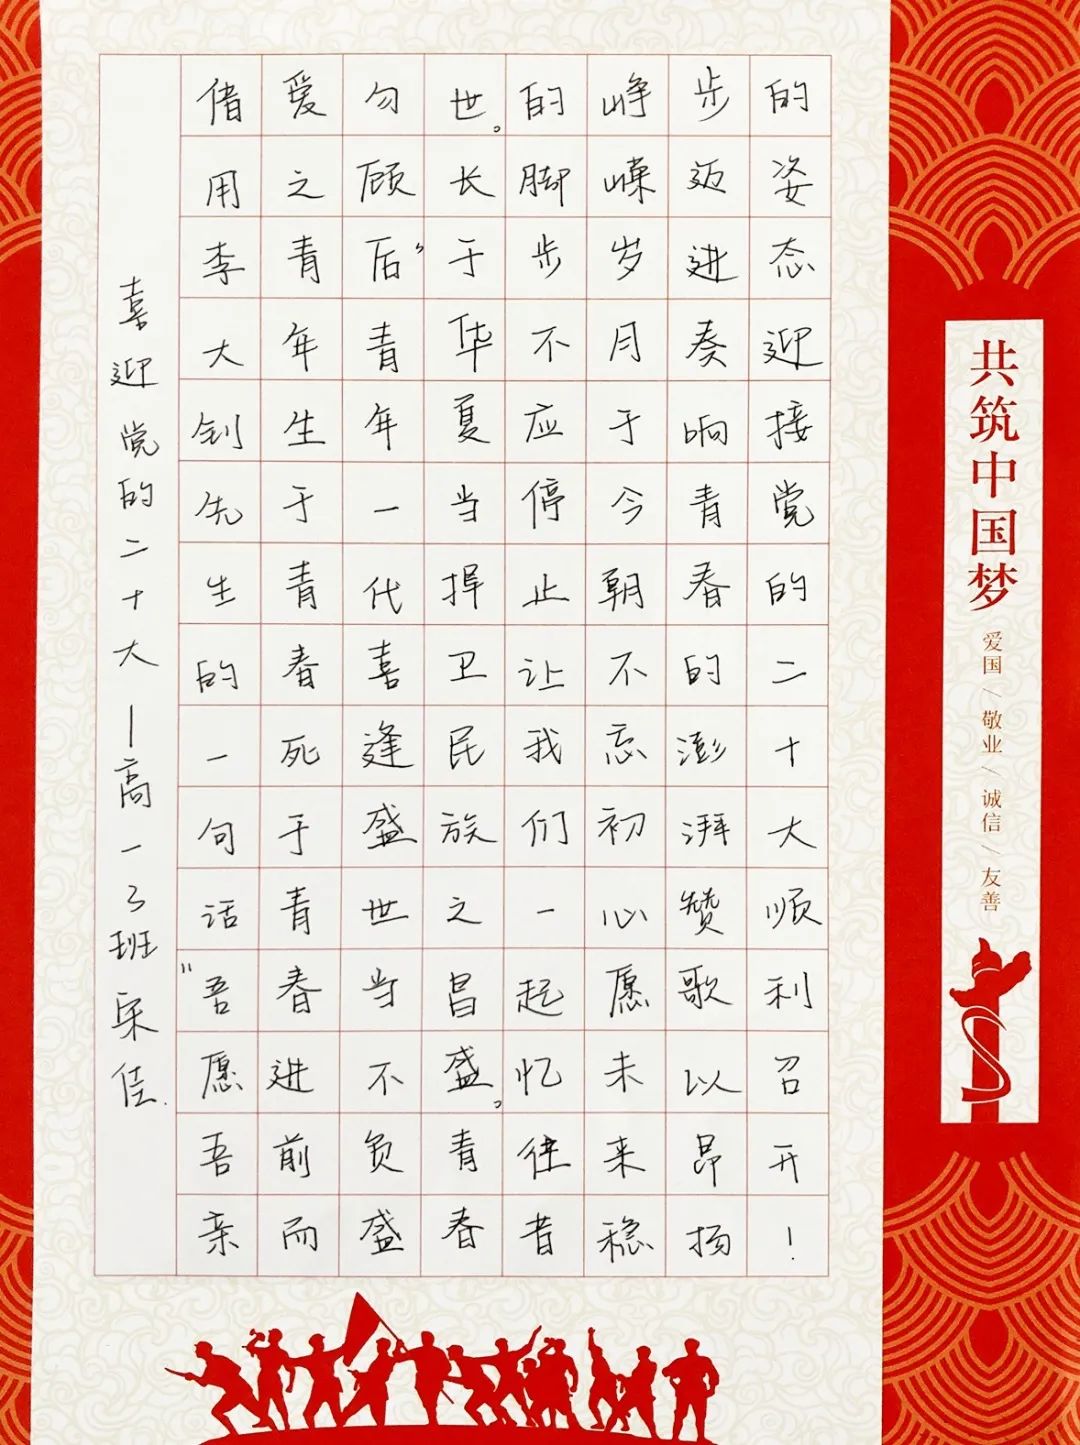 喜迎党的二十大—高一3班宋佳.
借用李大钊先生的一句话"吾愿吾亲
爱之青年生于青春死于青春进前而
勿顾后"青年一代喜逢盛世当不负盛
世。长于华夏当捍卫民族之昌盛。青春
的脚步不应停止让我们一起忆往昔
峥嵘岁月于今朝不忘初心愿未来稳
步迈进奏响青春的澎湃赞歌以昂扬
的姿态迎接党的二十大顺利召开！
共筑中国梦
爱国/敬业/诚信/友善